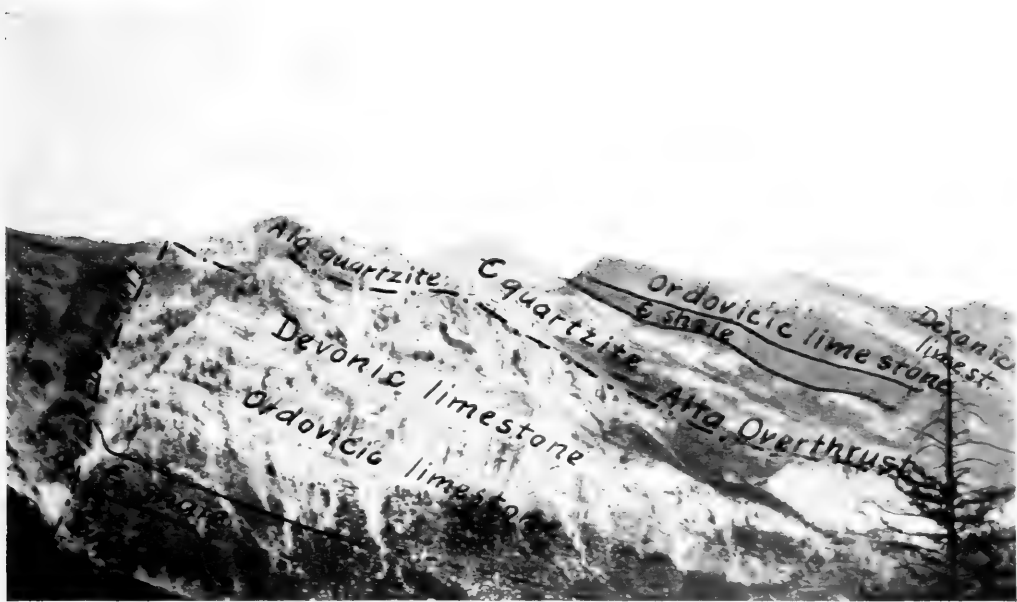 Alg. quartzite
C quartzite
Ordovicic limestone
Є shale
Devonic
limest.
Devonic limestone
Atta Overthrust
Ordovicic limeston